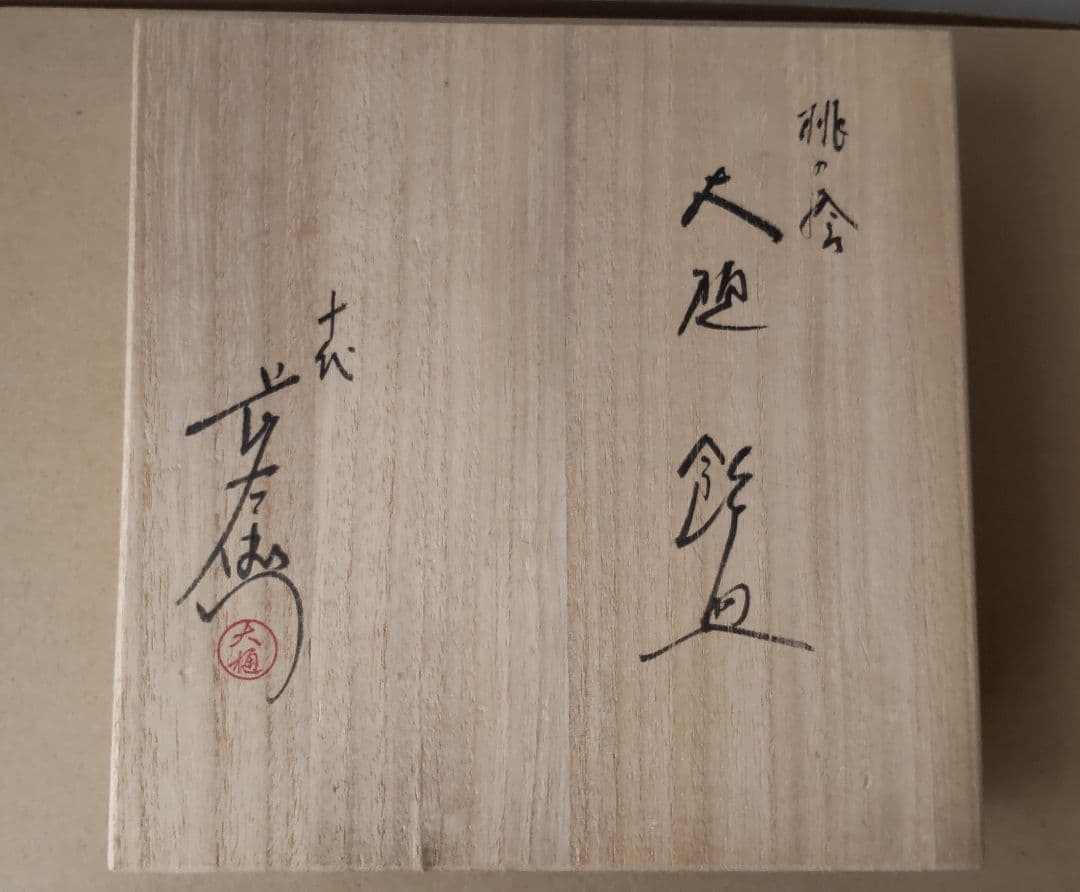 桃の絵
大樋 飾皿
十代
長左衛門
大樋